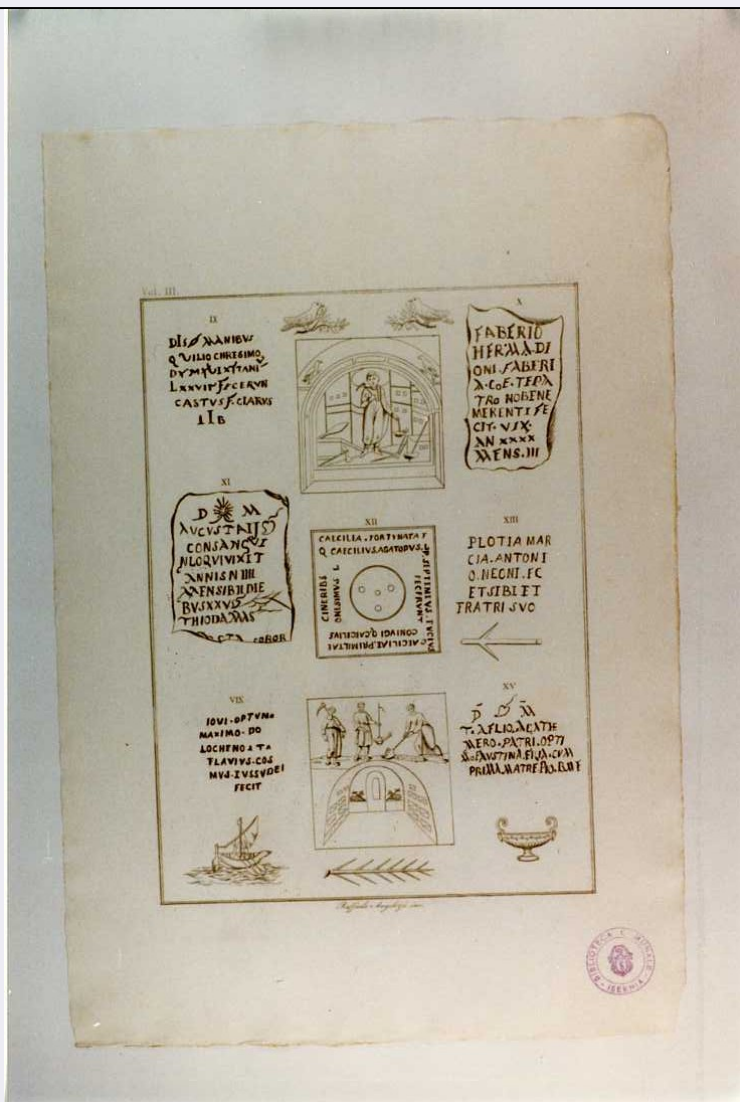 Vol. III.
IX
DIS MANIBVS
Q VILIO CHRESIMO
LXXVII FECERVN
CASTVS F. CLARVS
LIB
X
FABERIO
HERMADI
ONI. FABERI
A. COE. TEPA
TRO NOBENE
MERENTI FE
CIT. VIX.
AN XXXX
MENS. III
XI
D M
CONSANGVI
NLOQVIVIXIT
ANNIS N IIII
MENSIBII DIE
BVSXXVIS
THIODAMAS
XII
CALCILIA. FORTVNATA T
Q CAECILIVS. AGATOPVS. T
P. SEPTIMIVS. TVCIVS
FECERVNT
CAECILIAE. PRIMILLAE
CONIVGI Q. CAICILIVS
CINERIBS
XIII
PLOTIA MAR
CIA. ANTONI
O. NEONI. FC
ETSIBI ET
TRATRI SVO
VIX
IOVI. OPTVMO
MAXIMO. DO
LOCHENO. T.
FLAVIVS. COS
MVS. IVSSVDEI
FECIT
XV
D M
T. AFLIO. AGATH
MERO. PATRI. OPTI
M. FAVSTINA. FILIA. CVM
PRIMA. MATRE
BIBLIOTECA COMUNALE
ISERNIA